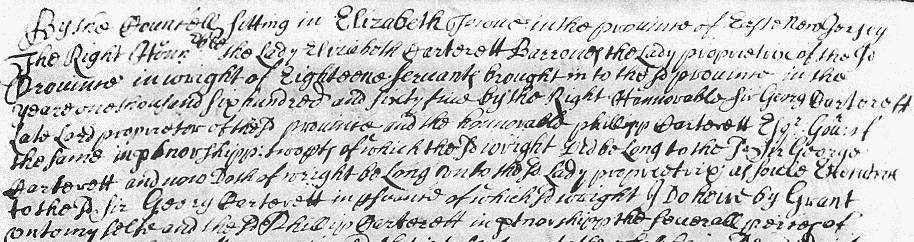 By the Councell sitting in Elizabeth Towne in the province of Easte New Jersey
The Right Honrable the Lady Elizabeth Carterett Barrones the Lady proprietrix of the sd
Province in wright of Eighteene servants brought in to the sd province in the
yeare one thousand six hundred and sixty five by the Right Honnorable Sir Georg Carterett
Late Lord proprietor of the sd province and the honnorable phillipp Carterett Esqr. Gournr of
the same in ptnorshipp: two pts of which the sd wright Did be Long to the sd Sir George
Carterett and now Doth of wright be Long unto the sd Lady proprietrix as soule
to the sd Sir Georg Carterett in of which sd wright I Do heire by Grant
unto my selfe and the sd Phillip Carterett in ptnorshipp the severall peeces of